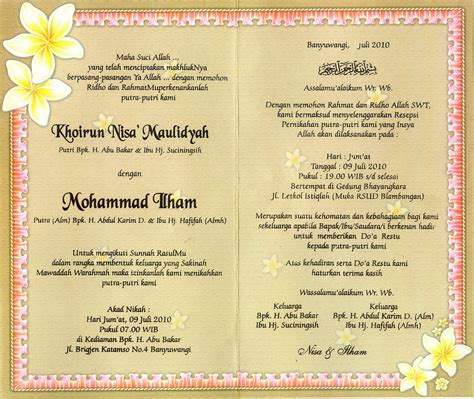 Maha Suci Allah ...
yang telah menciptakan makhlukNya
berpasang-pasangan Ya Allah ... dengan memohon
Ridho dan RahmatMuperkenankanlah
putra-putri kami
Khoirun Nisa' Maulidyah
Putri Bpk. H. Abu Bakar & Ibu Hj. Suciningsih
dengan
Mohammad Ilham
Putra (Alm) Bpk. H. Abdul Karim D. & Ibu Hj. Hafifah (Almh)
Untuk mengikuti Sunnah RasulMu
dalam rangka membentuk keluarga yang Sakinah
Mawaddah Warahmah maka izinkanlah kami menikahkan
putra-putri kami
Akad Nikah :
Hari Jum'at, 09 Juli 2010
Pukul 07.00 WIB
di Kediaman Bpk. H. Abu Bakar
Jl. Brigjen Katamso No.4 Banyuwangi
Banyuwangi, Juli 2010
بسم الله الرحمن الرحيم
Assalamu'alaikum Wr. Wb.
Dengan memohon Rahmat dan Ridho Allah SWT,
kami bermaksud menyelenggarakan Resepsi
Pernikahan putra-putri kami yang Insya
Allah akan dilaksanakan pada :
Hari : Jum'at
Tanggal : 09 Juli 2010
Pukul : 19.00 WIB s/d selesai
Bertempat di Gedung Bhayangkara
Jl. Letkol Istiqlah (Muka RSUD Blambangan)
Merupakan suatu kehormatan dan kebahagiaan bagi kami
sekeluarga apabila Bapak/Ibu/Saudara/i berkenan hadir
untuk memberikan Do'a Restu
kepada putra-putri kami.
Atas kehadiran serta Do'a Restu kami
haturkan terima kasih.
Wassalamu'alaikum Wr. Wb.
Keluarga Keluarga
Bpk H. Abu Bakar Bpk H. Abdul Karim D. (Alm)
Ibu Hj. Suciningsih Ibu Hj. Hafifah (Almh)
Nisa & Ilham